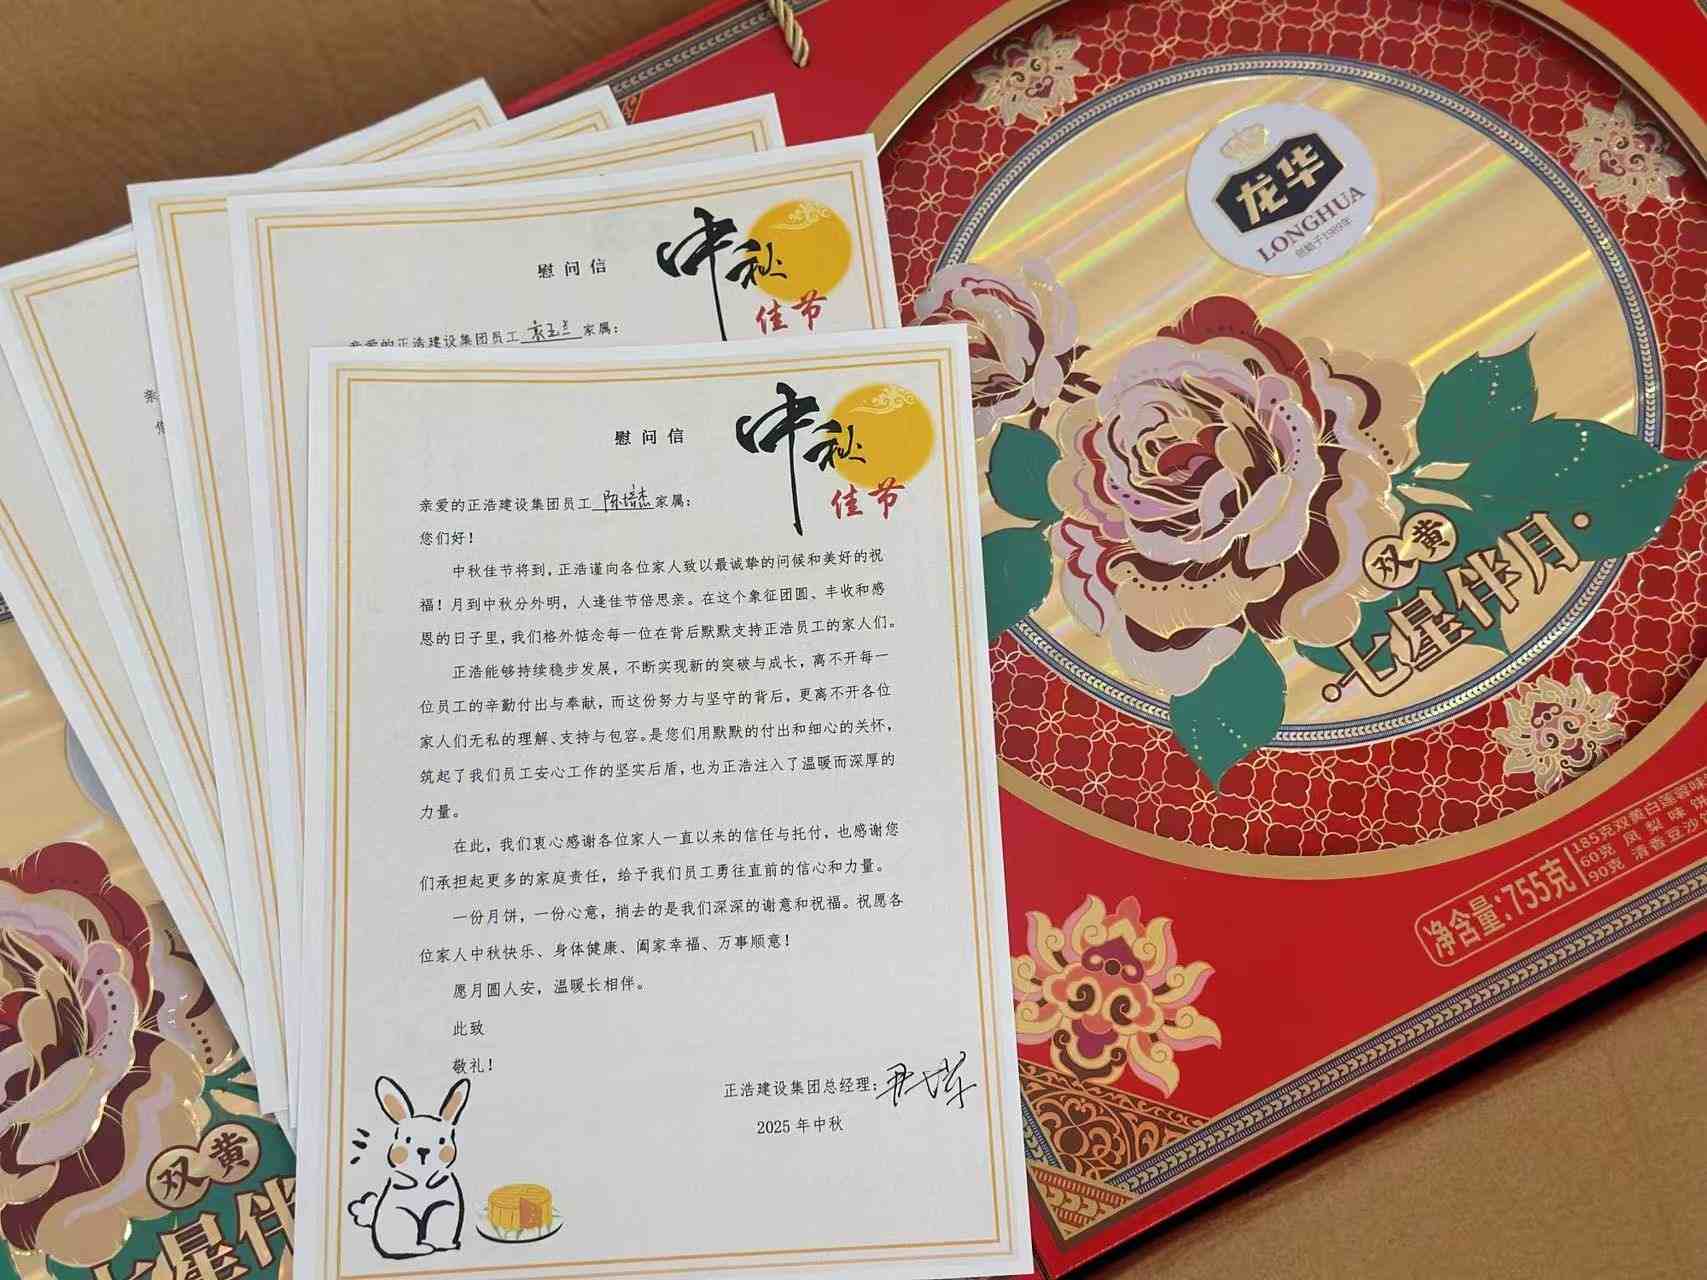 慰问信
中秋
佳节
亲爱的正浩建设集团员工 家属：
慰问信
中秋
佳节
亲爱的正浩建设集团员工陈培杰家属：
您们好！
中秋佳节将到，正浩谨向各位家人致以最诚挚的问候和美好的祝
福！月到中秋分外明，人逢佳节倍思亲。在这个象征团圆、丰收和感
恩的日子里，我们格外惦念每一位在背后默默支持正浩员工的家人们。
正浩能够持续稳步发展，不断实现新的突破与成长，离不开每一
位员工的辛勤付出与奉献，而这份努力与坚守的背后，更离不开各位
家人们无私的理解、支持与包容。是您们用默默的付出和细心的关怀，
筑起了我们员工安心工作的坚实后盾，也为正浩注入了温暖而深厚的
力量。
在此，我们衷心感谢各位家人一直以来的信任与托付，也感谢您
们承担起更多的家庭责任，给予我们员工勇往直前的信心和力量。
一份月饼，一份心意，捎去的是我们深深的谢意和祝福。祝愿各
位家人中秋快乐、身体健康、阖家幸福、万事顺意！
愿月圆人安，温暖长相伴。
此致
敬礼！
正浩建设集团总经理：
2025 年中秋
亲
您
龙华
LONGHUA
创始于1989年
双黄
·七星伴月·
净含量：755克
185克双黄白莲蓉味
60克 凤梨味
90克 清香豆沙
双黄
七星伴